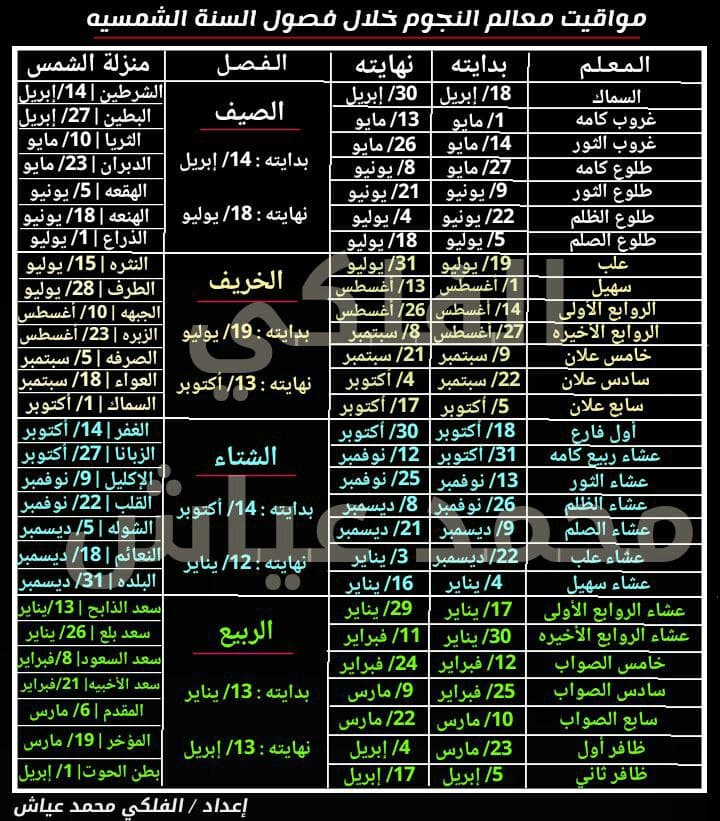 مواقيت معالم النجوم خلال فصول السنة الشمسيه
المعلم بدايته نهايته الفصل منزلة الشمس
السماك 18/ إبريل 30/ إبريل الصيف الشرطين | 14/إبريل
غروب كامه 1/ مايو 13/ مايو البطين | 27/ إبريل
غروب الثور 14/ مايو 26/ مايو بدايته : 14/ إبريل الثريا | 10/ مايو
طلوع كامه 27/ مايو 8/ يونيو الدبران | 23/ مايو
طلوع الثور 9/ يونيو 21/ يونيو الهقعه | 5/ يونيو
طلوع الظلم 22/ يونيو 4/ يوليو نهايته : 18/ يوليو الهنعه | 18/ يونيو
طلوع الصلم 5/ يوليو 18/ يوليو الذراع | 1/ يوليو
علب 19/ يوليو 31/ يوليو الخريف النثره | 15/ يوليو
سهيل 1/ أغسطس 13/ أغسطس الطرف | 28/ يوليو
الروابع الأولى 14/ أغسطس 26/ أغسطس الجبهه | 10/ أغسطس
الروابع الأخيره 27/ أغسطس 8/ سبتمبر بدايته : 19/ يوليو الزبره | 23/ أغسطس
خامس علان 9/ سبتمبر 21/ سبتمبر الصرفه | 5/ سبتمبر
سادس علان 22/ سبتمبر 4/ أكتوبر نهايته : 13/ أكتوبر العواء | 18/ سبتمبر
سابع علان 5/ أكتوبر 17/ أكتوبر السماك | 1/ أكتوبر
أول فارع 18/ أكتوبر 30/ أكتوبر الشتاء الغفر | 14/ أكتوبر
عشاء ربيع كامه 31/ أكتوبر 12/ نوفمبر الزبانا | 27/ أكتوبر
عشاء الثور 13/ نوفمبر 25/ نوفمبر الإكليل | 9/ نوفمبر
عشاء الظلم 26/ نوفمبر 8/ ديسمبر بدايته : 14/ أكتوبر القلب | 22/ نوفمبر
عشاء الصلم 9/ ديسمبر 21/ ديسمبر الشوله | 5/ ديسمبر
عشاء علب 22/ ديسمبر 3/ يناير نهايته : 12/ يناير النعائم | 18/ ديسمبر
عشاء سهيل 4/ يناير 16/ يناير البلده | 31/ ديسمبر
عشاء الروابع الأولى 17/ يناير 29/ يناير الربيع سعد الذابح | 13/يناير
عشاء الروابع الأخيره 30/ يناير 11/ فبراير سعد بلع | 26/ يناير
خامس الصواب 12/ فبراير 24/ فبراير سعد السعود| 8/فبراير
سادس الصواب 25/ فبراير 9/ مارس بدايته : 13/ يناير سعد الأخبيه| 21/فبراير
سابع الصواب 10/ مارس 22/ مارس المقدم | 6/ مارس
ظافر أول 23/ مارس 4/ إبريل نهايته : 13/ إبريل المؤخر | 19/ مارس
ظافر ثاني 5/ إبريل 17/ إبريل بطن الحوت| 1/ إبريل
الفلكي
محمد عياش
إعداد / الفلكي محمد عياش